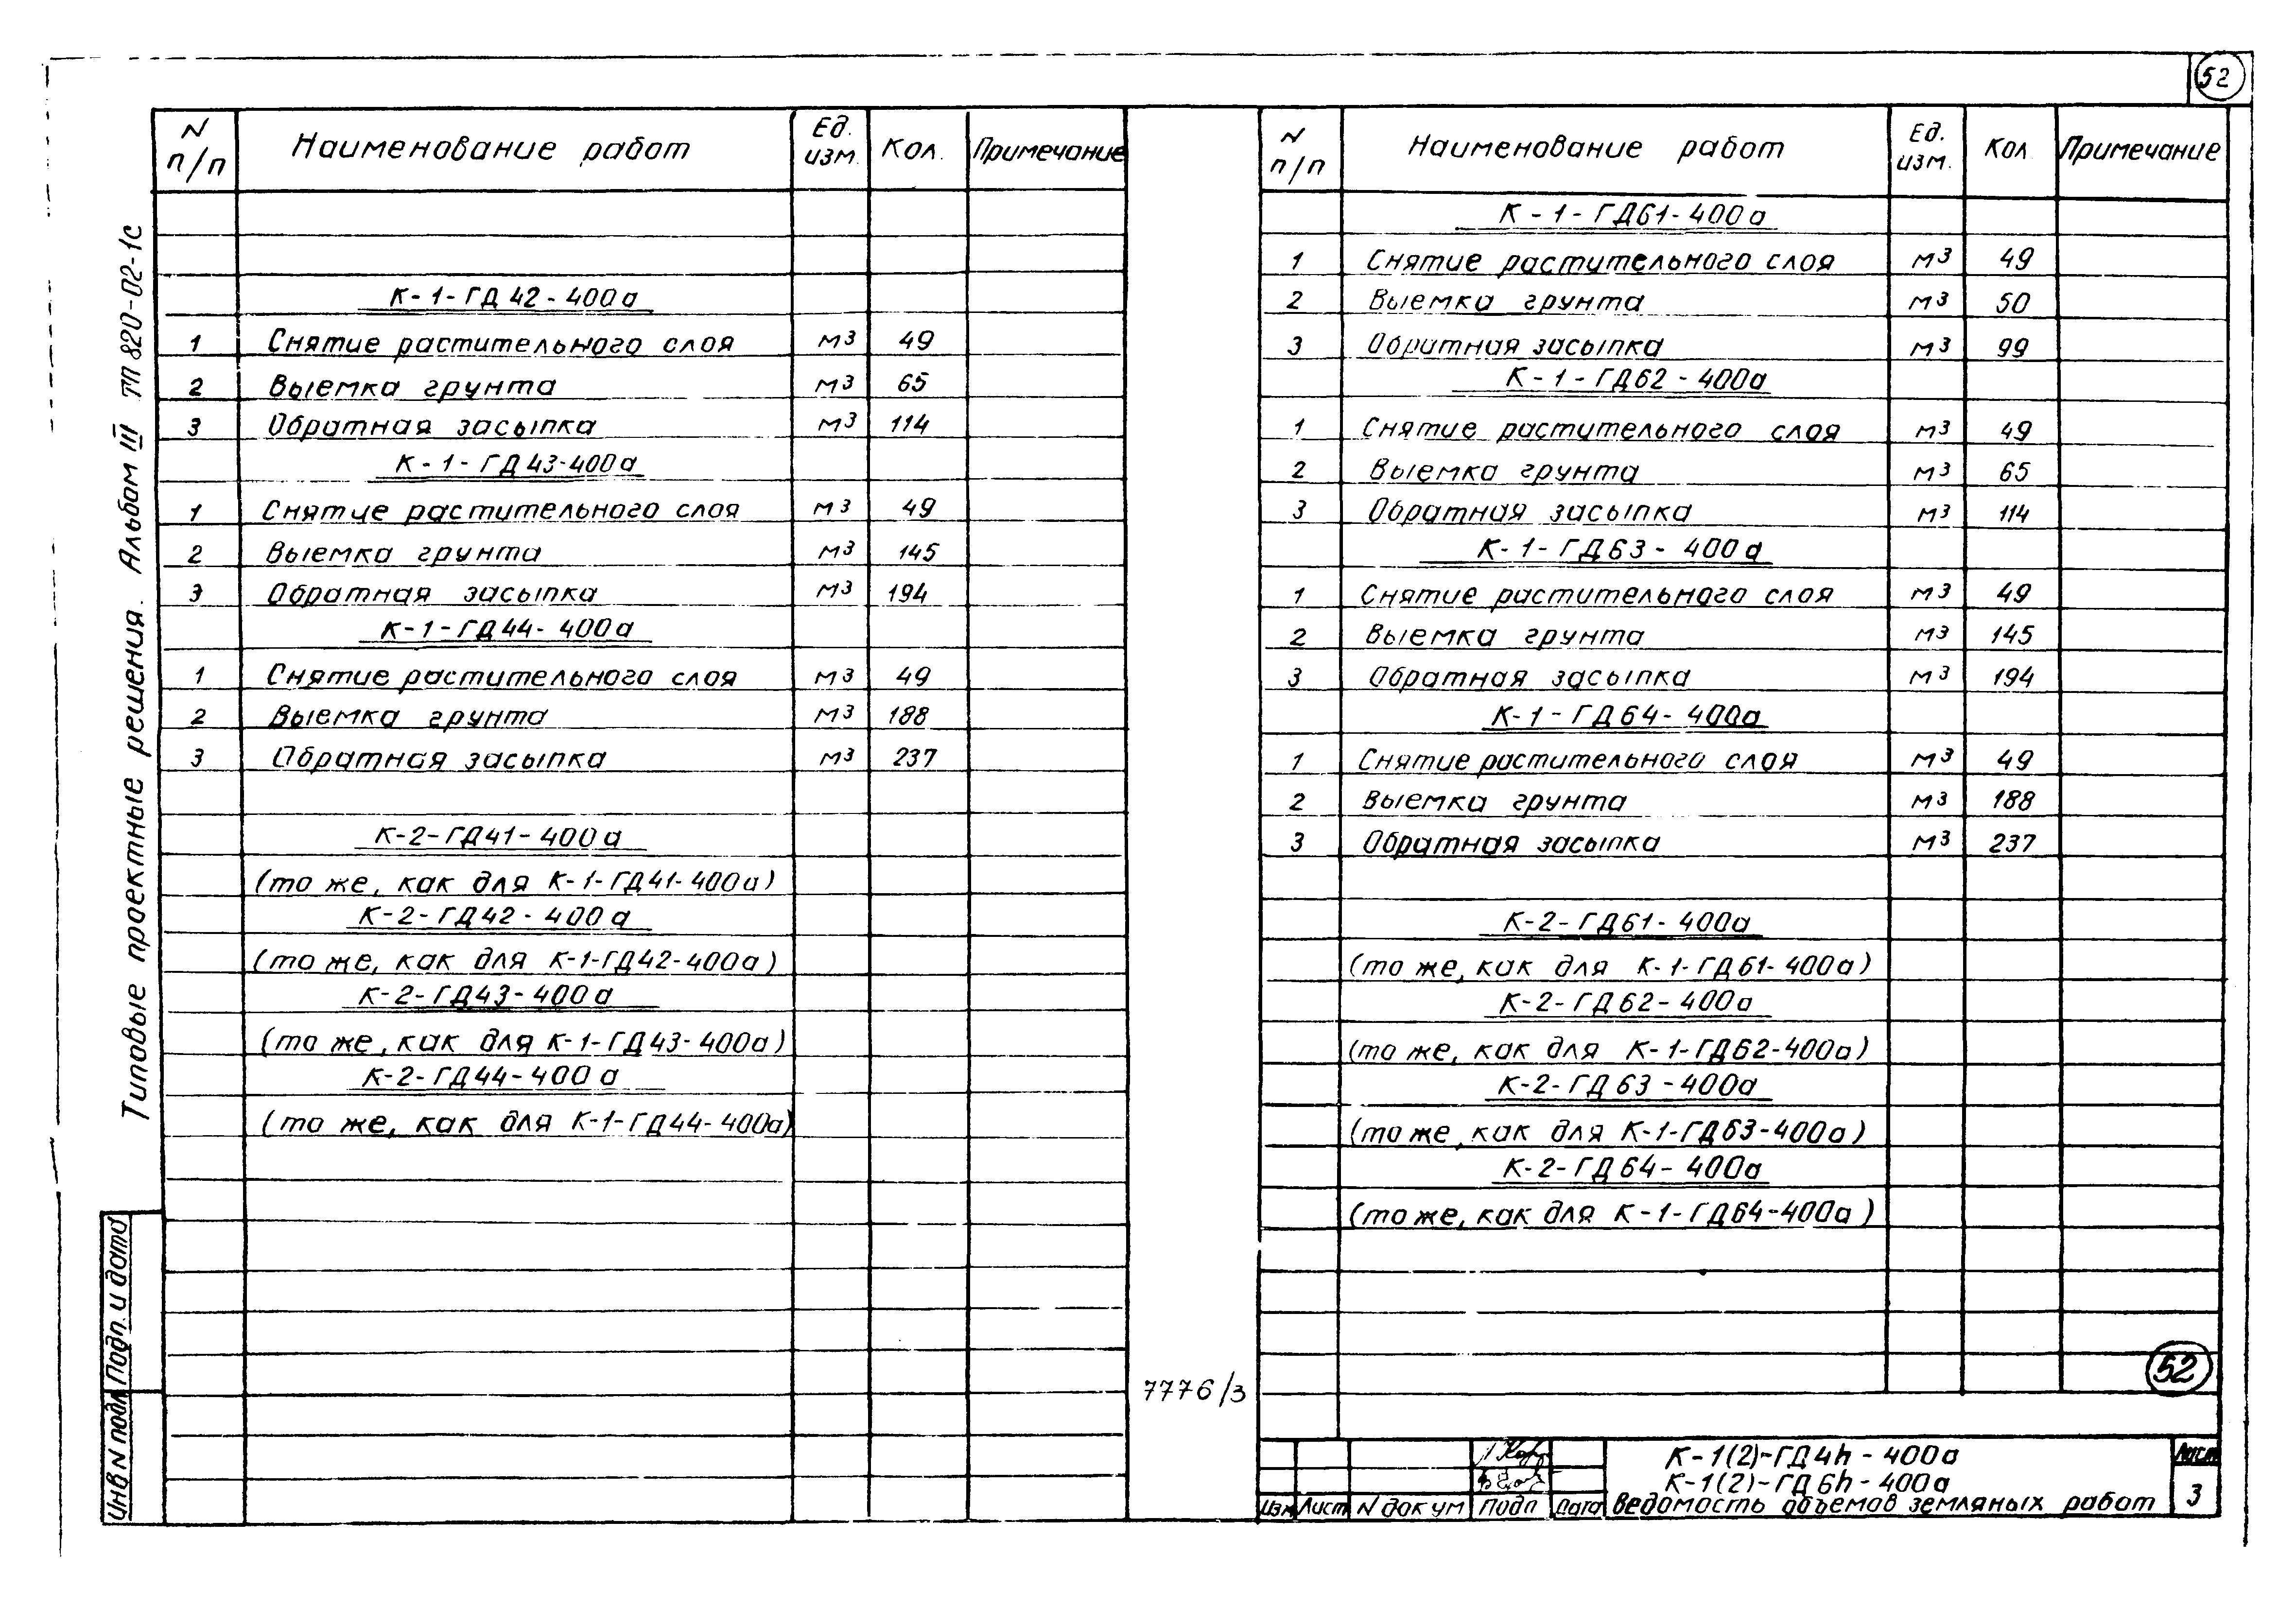 52
Типовые проектные решения. Альбом III ТП 820-02-1с
N п/п Наименование работ Ед. изм. Кол. Примечание
К-1-ГД42-400а
1 Снятие растительного слоя м3 49
2 Выемка грунта м3 65
3 Обратная засыпка м3 114
К-1-ГД43-400а
1 Снятие растительного слоя м3 49
2 Выемка грунта м3 145
3 Обратная засыпка м3 194
К-1-ГД44-400а
1 Снятие растительного слоя м3 49
2 Выемка грунта м3 188
3 Обратная засыпка м3 237
К-2-ГД41-400а
(то же, как для К-1-ГД41-400а)
К-2-ГД42-400а
(то же, как для К-1-ГД42-400а)
К-2-ГД43-400а
(то же, как для К-1-ГД43-400а)
К-2-ГД44-400а
(то же, как для К-1-ГД44-400а)
N п/п Наименование работ Ед. изм. Кол Примечание
К-1-ГД61-400а
1 Снятие растительного слоя м3 49
2 Выемка грунта м3 50
3 Обратная засыпка м3 99
К-1-ГД62-400а
1 Снятие растительного слоя м3 49
2 Выемка грунта м3 65
3 Обратная засыпка м3 114
К-1-ГД63-400а
1 Снятие растительного слоя м3 49
2 Выемка грунта м3 145
3 Обратная засыпка м3 194
К-1-ГД64-400а
1 Снятие растительного слоя м3 49
2 Выемка грунта м3 188
3 Обратная засыпка м3 237
К-2-ГД61-400а
(то же, как для К-1-ГД61-400а)
К-2-ГД62-400а
(то же, как для К-1-ГД62-400а)
К-2-ГД63-400а
(то же, как для К-1-ГД63-400а)
К-2-ГД64-400а
(то же, как для К-1-ГД64-400а)
52
7776/3
Инв N подл Подп. и дата
К-1(2)-ГД4h-400а
К-1(2)-ГД6h-400а
Ведомость объемов земляных работ
Изм Лист N докум Подп Дата
Лист
3